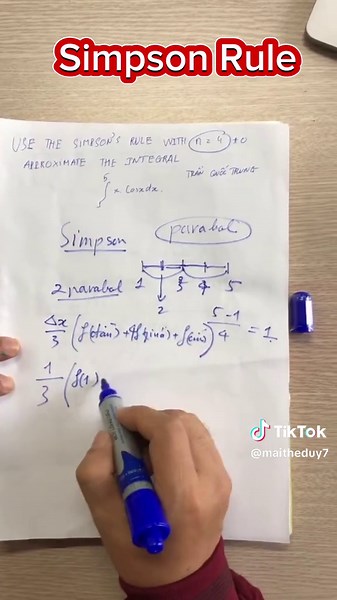 Simpson Rule
USE THE SIMPSON'S RULE WITH n = 4 to
APPROXIMATE THE INTEGRAL
TRẦN QUỐC TRUNG
∫ 5 x cosx dx.
Simpson
parabol
2 parabol 1 3 4 5
2
Δx/3 (f(đầu) + 4f(giữa) + f(cuối)) 5-1/4 = 1
1/3 (f(1)
TikTok
@maitheduy7